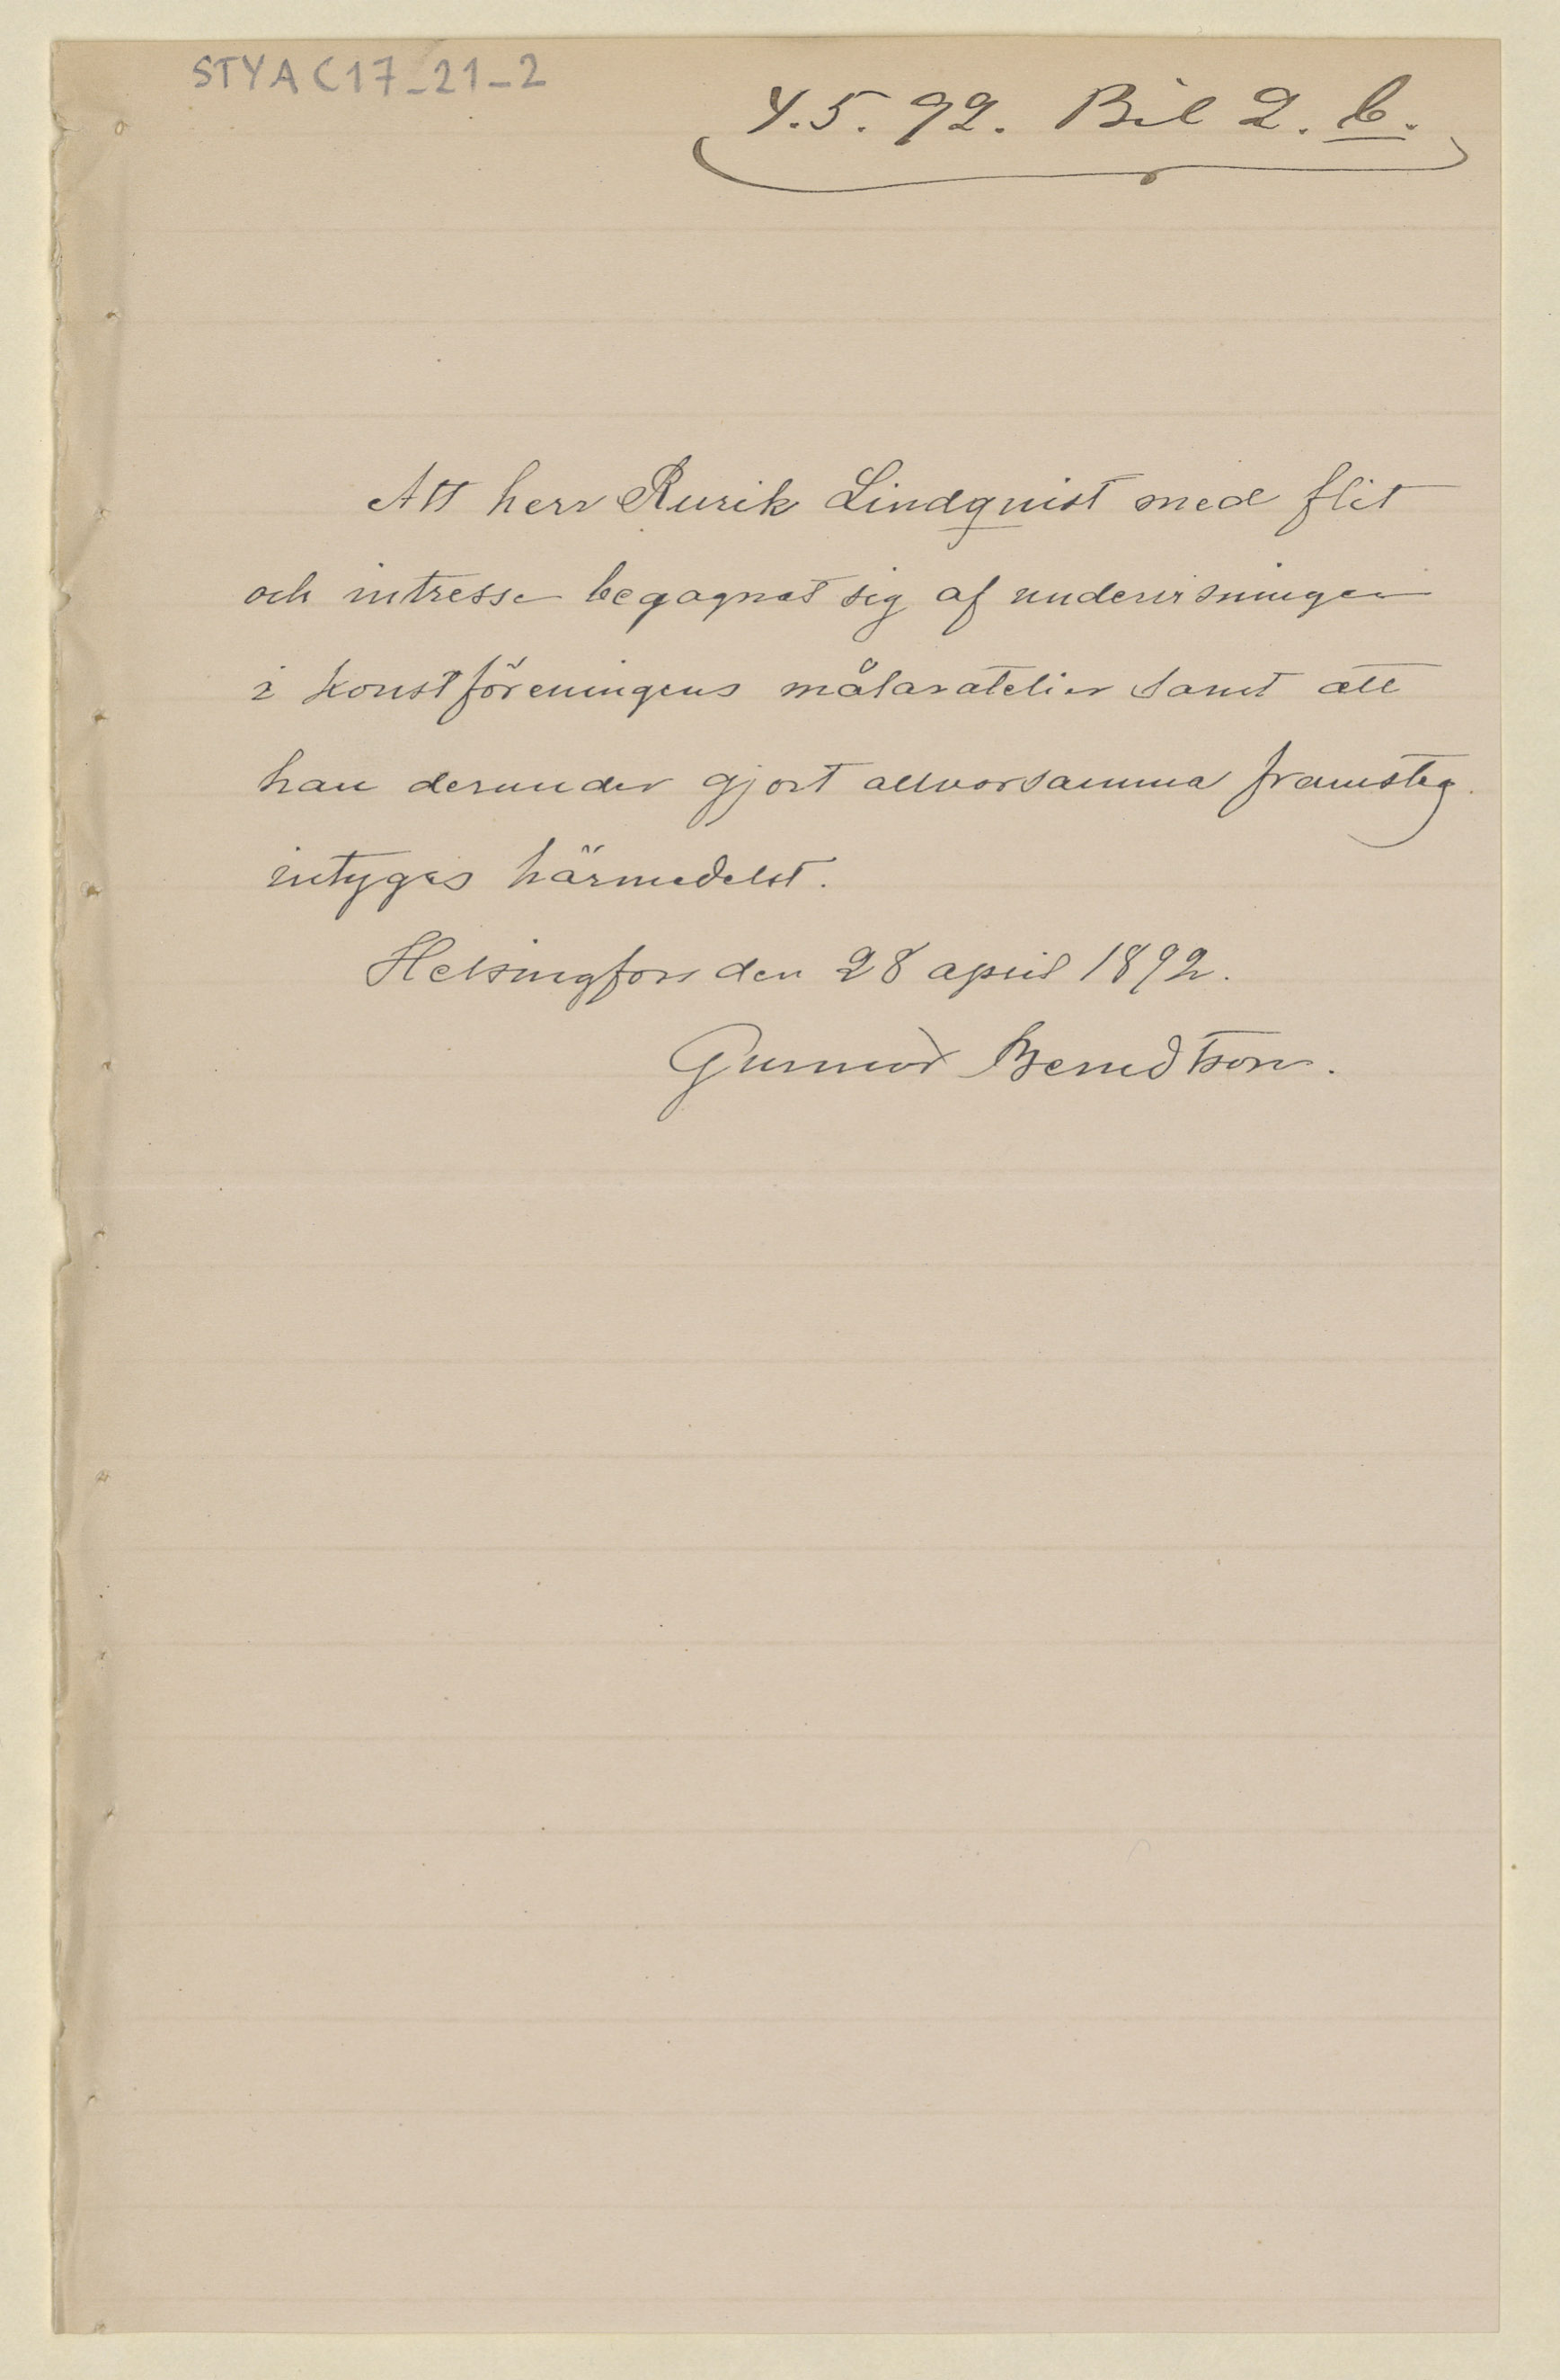 STYA C17_21_2
4.5.92. Bil 2. b.
Att herr Rurik Lindquist med flit
och intresse begagnat sig af undervisningen
i Konstföreningens målaratelier samt att
han derunder gjort allvarsamma framsteg
intygas härmedelst.
Helsingfors den 28 april 1892.
Gunnar Berndtson.